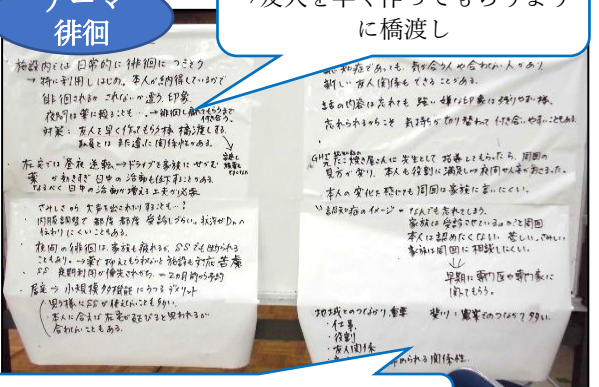 テーマ
徘徊
→友人を早く作ってもらうよう
に橋渡し
施設内では 日常的に 徘徊につきとう
→特に利用しはじめ。本人が納得しているかで
徘徊されるか されないか違う印象
夜間は薬に頼ることも…→徘徊し疲れてもらうまで
付き合う。
対策：友人を早く作ってもらう様 橋渡しする。
職員とは また違った関係性がある。
・在宅では昼夜逆転→ドライブを家族にせがむ
薬がききすぎ 日中の活動も低下することがある
なるべく日中の活動が増える工夫が必要
さみしさから 大声を出されたりすることも…!
・内服調整で 都度都度 受診しづらい。状況がDr.へ
伝わりにくいこともある。
・夜間の徘徊は、家族も疲れるが、SSでも断られる
こともあり。→薬で抑えてもらわないと施設も対応苦慮
・SS 長期利用が優先されがち。=2カ月前から予約
・居宅→小規模多機能にうつるデメリット
思う様にSSが使えないことも多い。
・本人に合えば在宅が延びると思われるが
合わないこともある。
認知症であっても、気が合う人や合わない人があり
新しい友人関係もできることがある。
話の内容は忘れても 強い嫌な印象は残りやすい様、
忘れられるからこそ 気持ちが切り替わって付き合いやすいこともある
たこ焼き屋さんに先生として 指導してもらったら、周囲の
見方が変り、本人も役割に満足し
本人の変化を感じても周囲は家族に言いにくい。
認知症のイメージ = なんでも忘れてしまう。
家族は受診させているのか?と周囲
本人は認めたくない 苦しい、さみしい
家族は周囲に相談しにくい。
早期に専門医や専門家に
関してもらう。
地域とのつながり 重要
・仕事
・役割
・友人関係
められる関係性